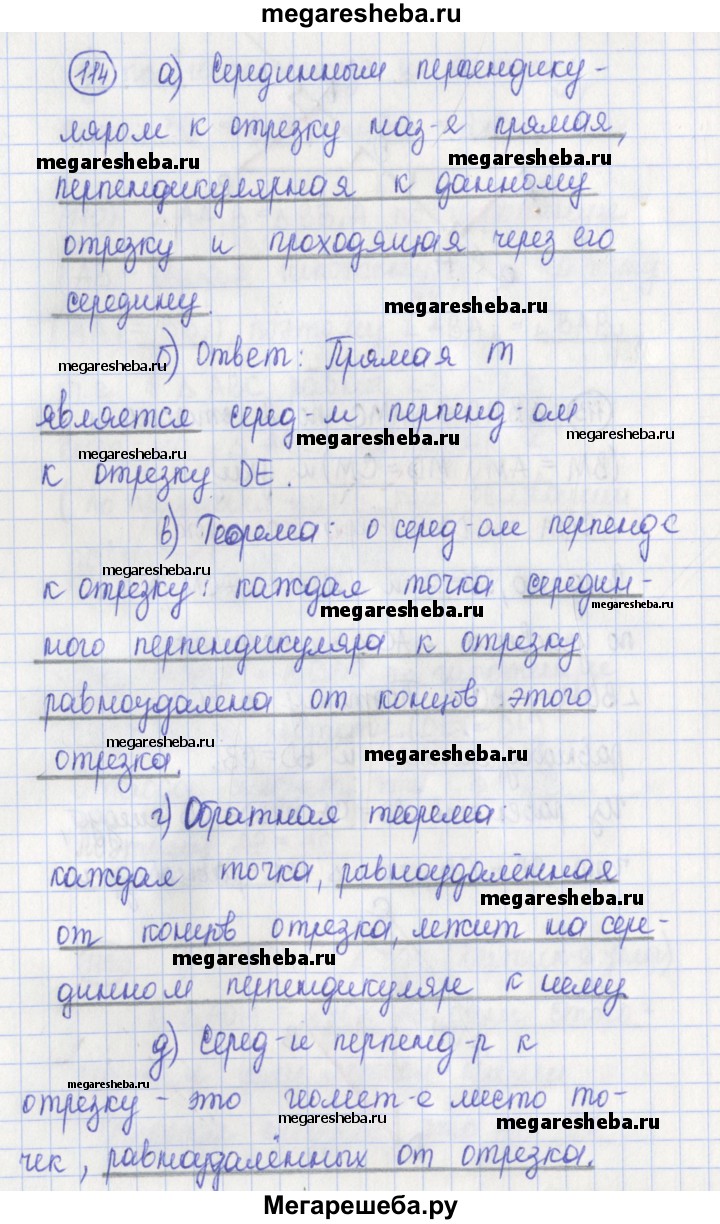 megaresheba.ru
114 а) Серединным перпендику-
ляром к отрезку наз-я прямая,
megaresheba.ru megaresheba.ru
перпендикулярная к данному
отрезку и проходящая через его
середину. megaresheba.ru
megaresheba.ru б) Ответ: Прямая m
является серед-м перпенд-ом
megaresheba.ru megaresheba.ru
к отрезку DE.
в) Теорема: о серед-ом перпенд-е
megaresheba.ru
к отрезку: каждая точка середин-
megaresheba.ru megaresheba.ru
ного перпендикуляра к отрезку
равноудалена от концов этого
megaresheba.ru megaresheba.ru
отрезка.
г) Обратная теорема:
каждая точка, равноудалённая
megaresheba.ru
от концов отрезка, лежит на сере-
megaresheba.ru
динном перпендикуляре к нему
д) Серед-й перпенд-р к
megaresheba.ru
отрезку - это геомет-е место то-
megaresheba.ru megaresheba.ru
чек, равноудалённых от отрезка.
Мегарешеба.ру